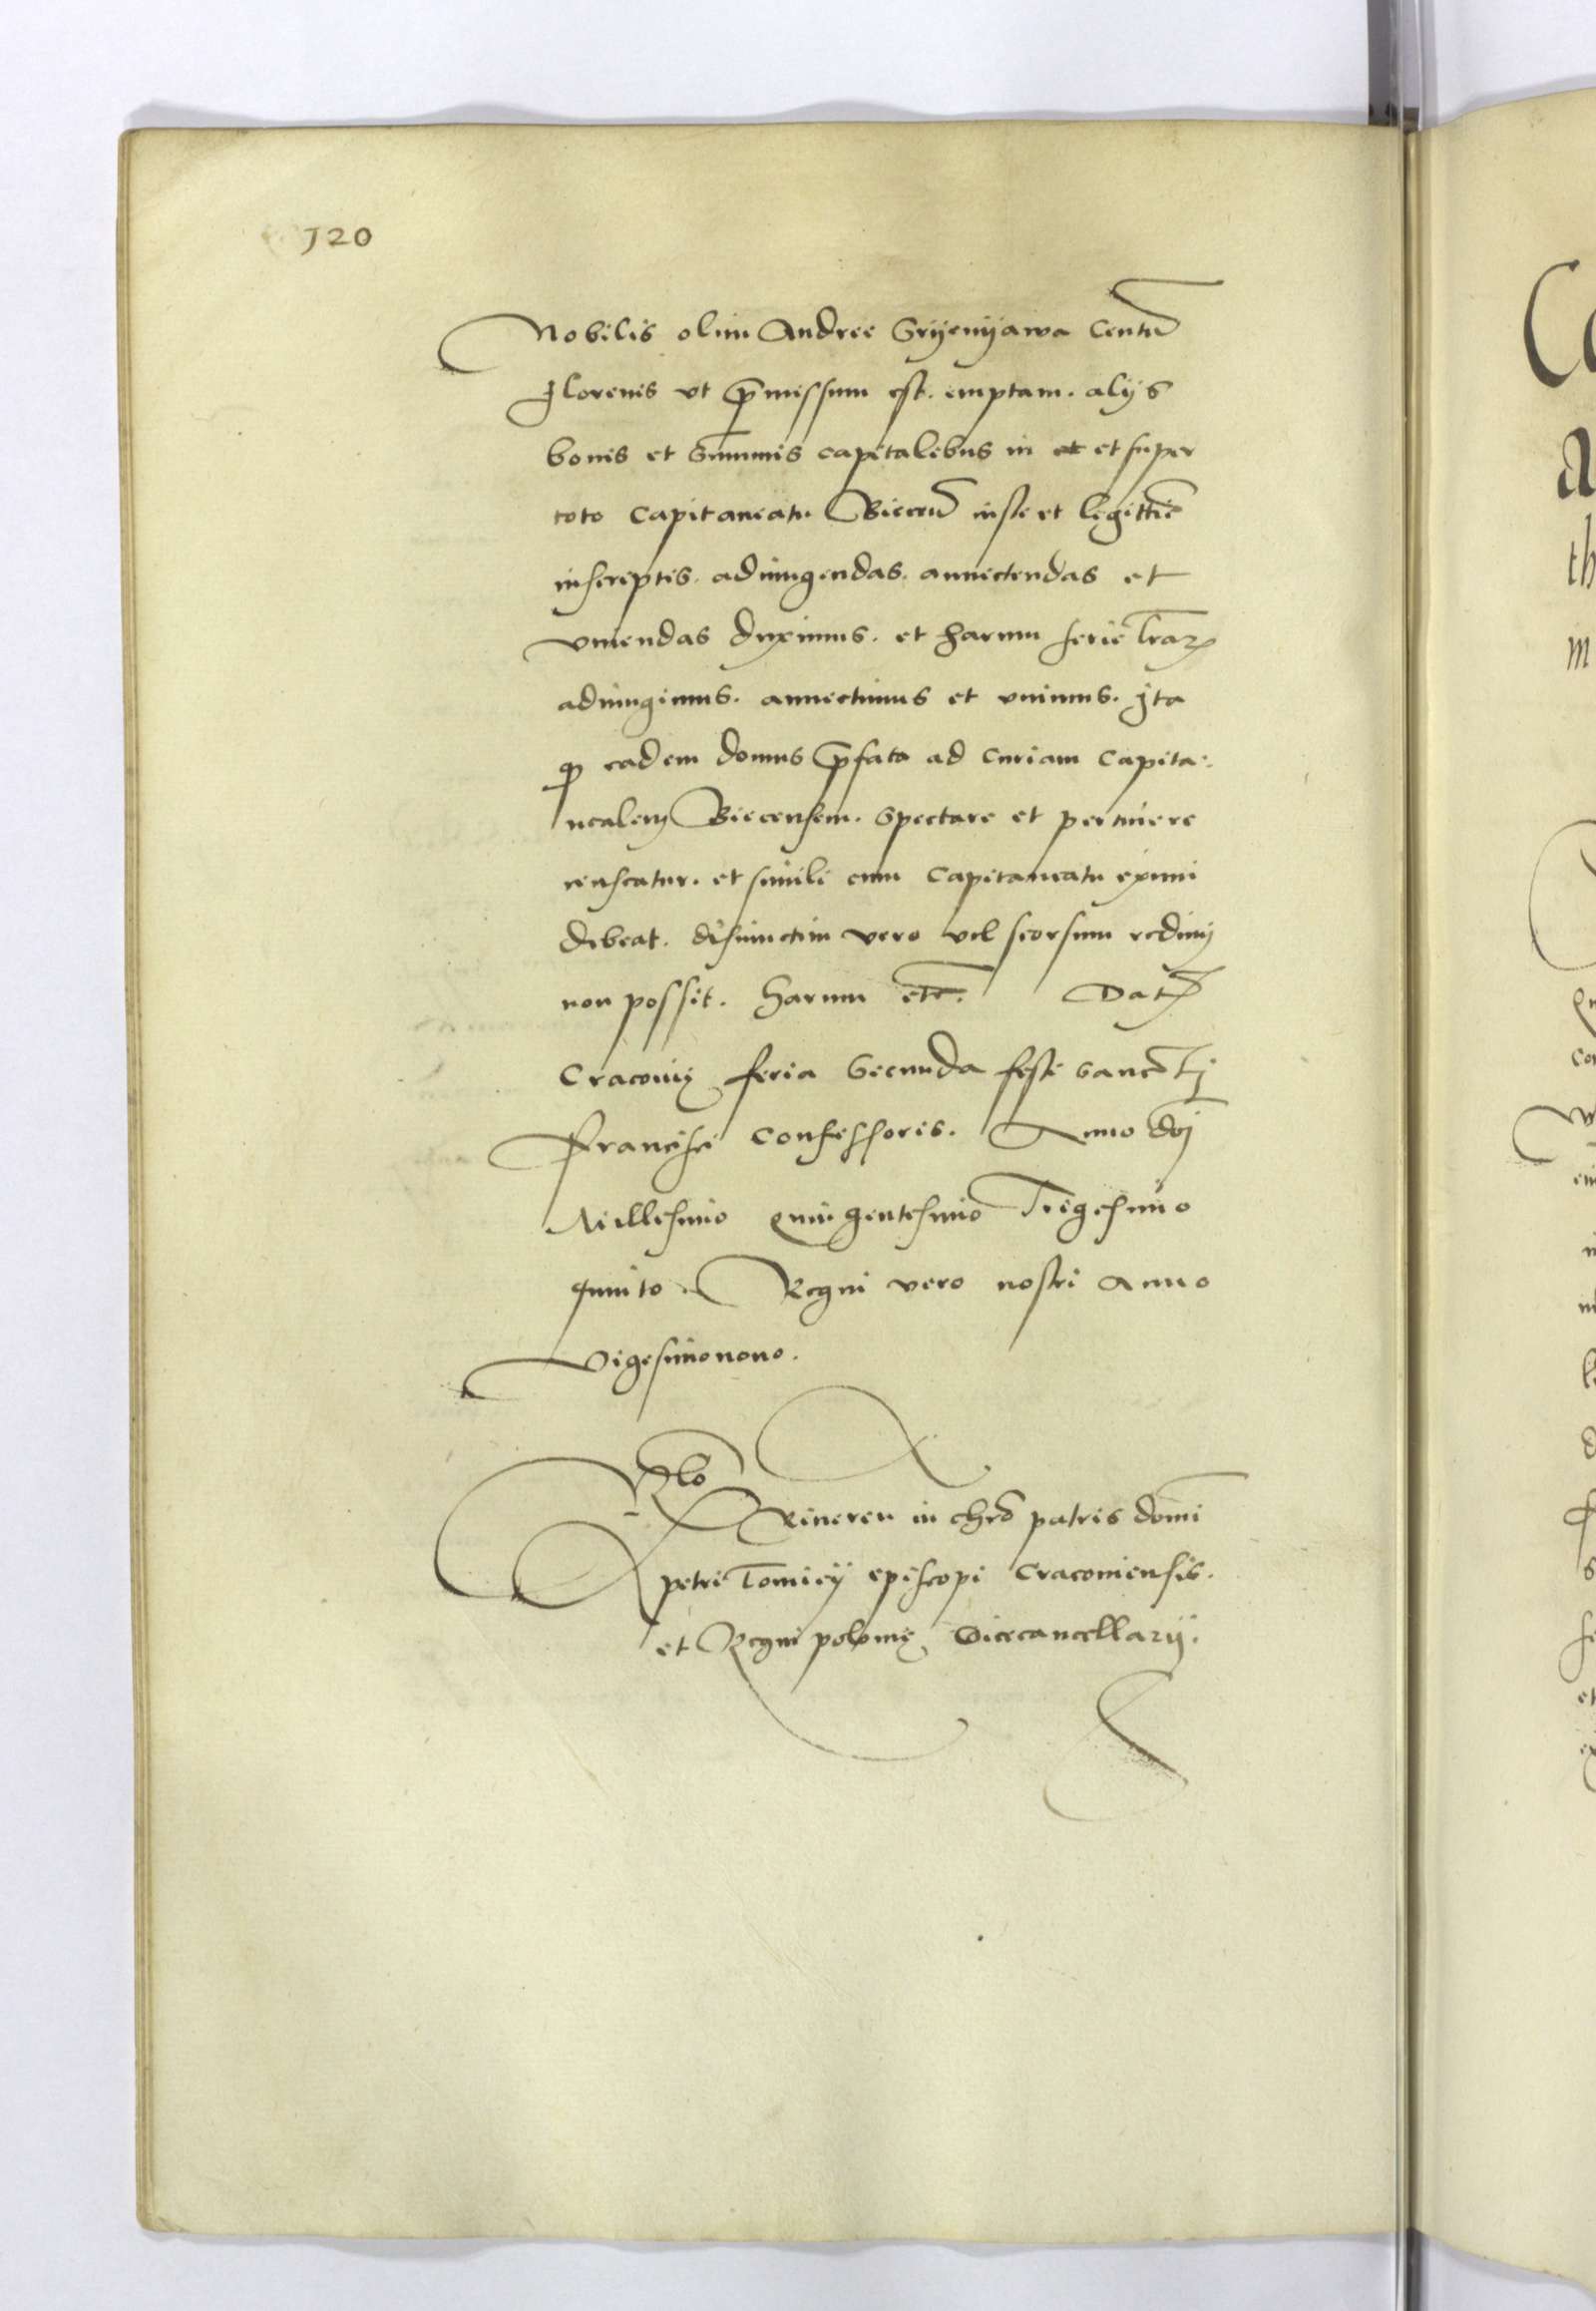 120
Nobilis olim Andree Gryenyawa Centũ
Florenis vt p̄missum est. emptam. alijs
bonis et Summis capitalibus in et et super
toto Capitaneatu Biecen̄ iuste et legittie
inscriptis. adiungendas. annectendas et
vniendas duximus. et harum serie l̄raꝝ
adiungimus. annectimus et vnimus. Ita
ꝙ eadem domus p̄fata ad Curiam Capita-
nealem Biecensem. Spectare et pertinere
censeatur. et simili cum Capitaneatu eximi
debeat. disiunctim vero vel seorsum redimj
non possit. Harum etc̄. Datꝭ
Cracovię feria Secunda festi Sanctj
Francisci Confessoris. Anno dn̄j
Millesimo Quingentesimo Trigesimo
quinto. Regni vero nostri Anno
Vigesimonono.
Rēlo
Reueren in chrō patris domi
petri Tomiczij episcopi Cracouiensis.
et Regni polonię Vicecancellarij.